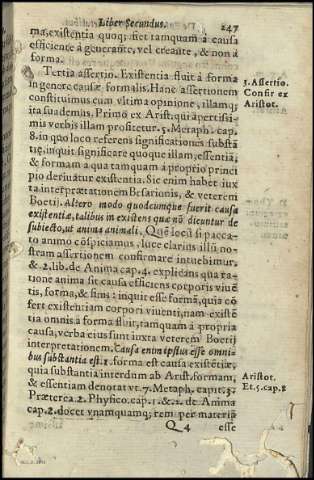 Liber Secundus. 247
ma, existentia quoq; fiet tamquam à causa
efficiente à generante, vel creante, & non à
forma.
Tertia assertio. Existentia fluit à forma
in genere causæ formalis. Hanc assertionem
constituimus cum vltima opinione, illamq;
ita suademus. Primo ex Arist. qui apertissi-
mis verbis illam profitetur. 5. Metaph. cap.
8. in quo loco referens significationes substā
tiæ, inquit significare quoque illam, essentiā,
& formam à qua tamquam à proprio princi
pio deriuatur existentia. Sic enim habet iux
ta interpretationem Besarionis, & veterem
Boetij. Altero modo quodcumque fuerit causa
existentiæ, talibus in existens quæ nō dicuntur de
subiecto, ut anima animali. Quē locū si pacca-
to animo cōspiciamus, luce clarius illū no-
stram assertionem confirmare intuebimur.
& 2. lib. de Anima cap. 4. explicans qua ra-
tione anima sit causa efficiens corporis viuē
tis, forma, & finis: inquit esse formā, quia cō
fert existentiam corpori viuenti, nam existē
tia omnis à forma fluit, tamquam à propria
causa, verba eius sunt iuxta veterem Boetij
interpretationem. Causa enim ipsius esse omni-
bus substantia est. I. forma est causa existētiæ,
quia substantia interdum ab Arist. formam,
& essentiam denotat vt. 7. Metaph. caput. 3.
Præterea. 2. Physico. cap. 1. & 2. de Anima
cap. 2. docet vnamquamq; rem per materiā
Q 4 esse
3. Assertio.
Confir ex
Aristot.
Aristot.
Et. 5. cap. 8